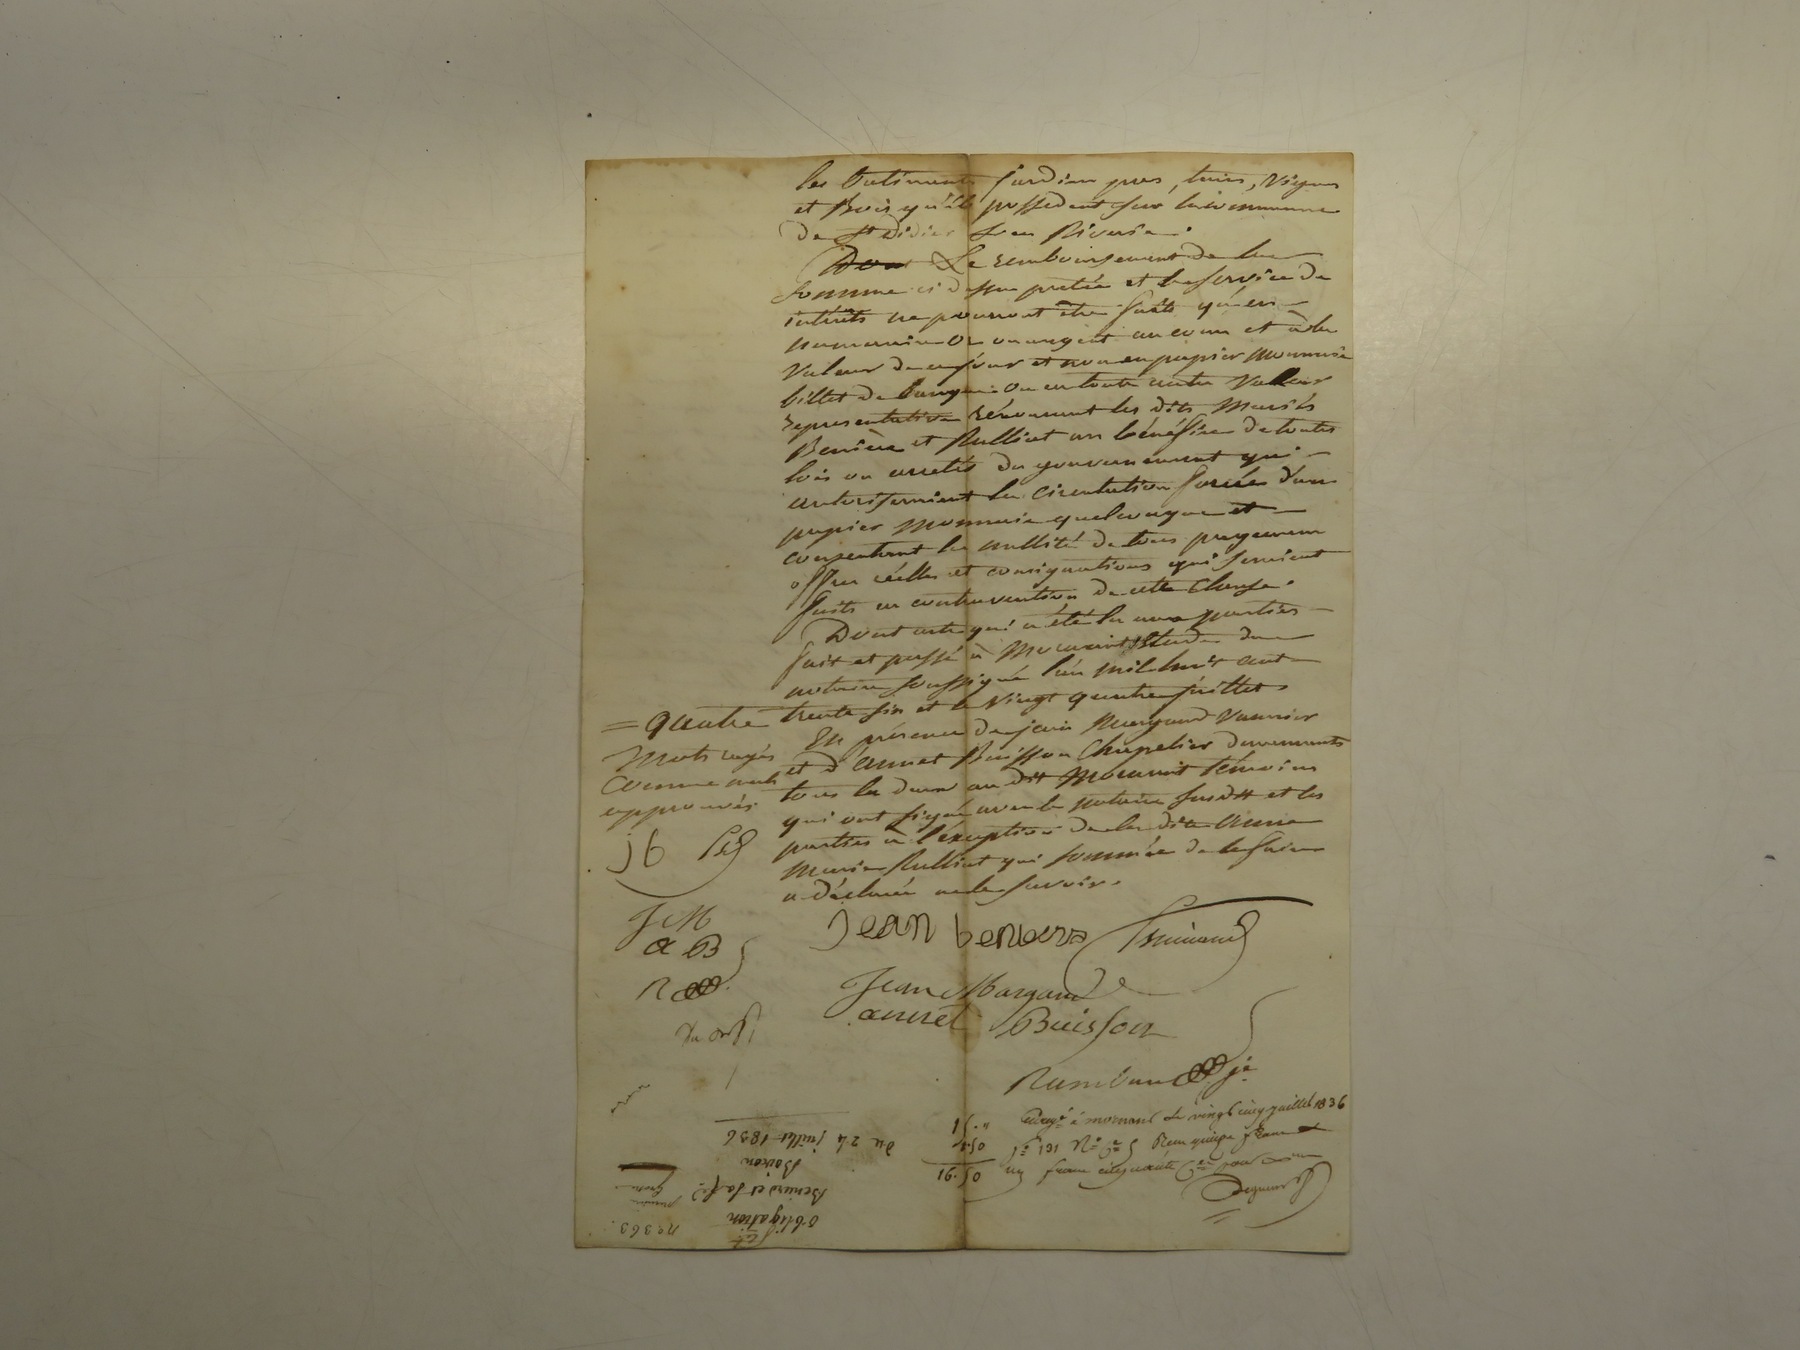 les batiments jardin prés, terres, vignes
et Bois qu'ils possedent sur la commune
de St Didier sous Riverie.
Dont Le remboursement de la
somme ci dessus pretée et le service des
intérêts ne pourront être faits qu'en
numeraire or ou argent au cours et à la
valeur de ce jour et non en papier monnaie
billet de banque ou en toute autre valeur
representative renonçant les dits Mariés
Beniere et Rulliat au bénéfice de toutes
lois ou arretés du gouvernement qui
autoriseraient la circulation forcée d'un
papier monnaie quelconque et
consentant la nullité de tous payemens
offres réelles et consignations qui seraient
faits en contravention de cette clause.
Dont acte qui a été lu aux parties
fait et passé à Mornant Etude du
notaire soussigné l'an mil huit cent
trente six et le vingt quatre juillet
En présence de jean Margand vannier
et d'annet Buisson Chapelier demeurants
tous les deux au dit Mornant témoins
qui ont signé avec le notaire susdit et les
parties à l'exception de la dite Anne
Marie Rulliat qui sommée de le faire
a déclaré ne le savoir.
= quatre
mots rayés
comme nuls
approuvés
jb
JM
a B
R
Jean beniere
Jean Margand
annet Buisson
Enregé à mornant le vingt cinq juillet 1836
fo 161 Ro Cse 5 Reçu quinze francs
un franc cinquante Cmes pour décime
No 363.
Obligation
Beniere et sa fe
Boiron
du 24 juillet 1836